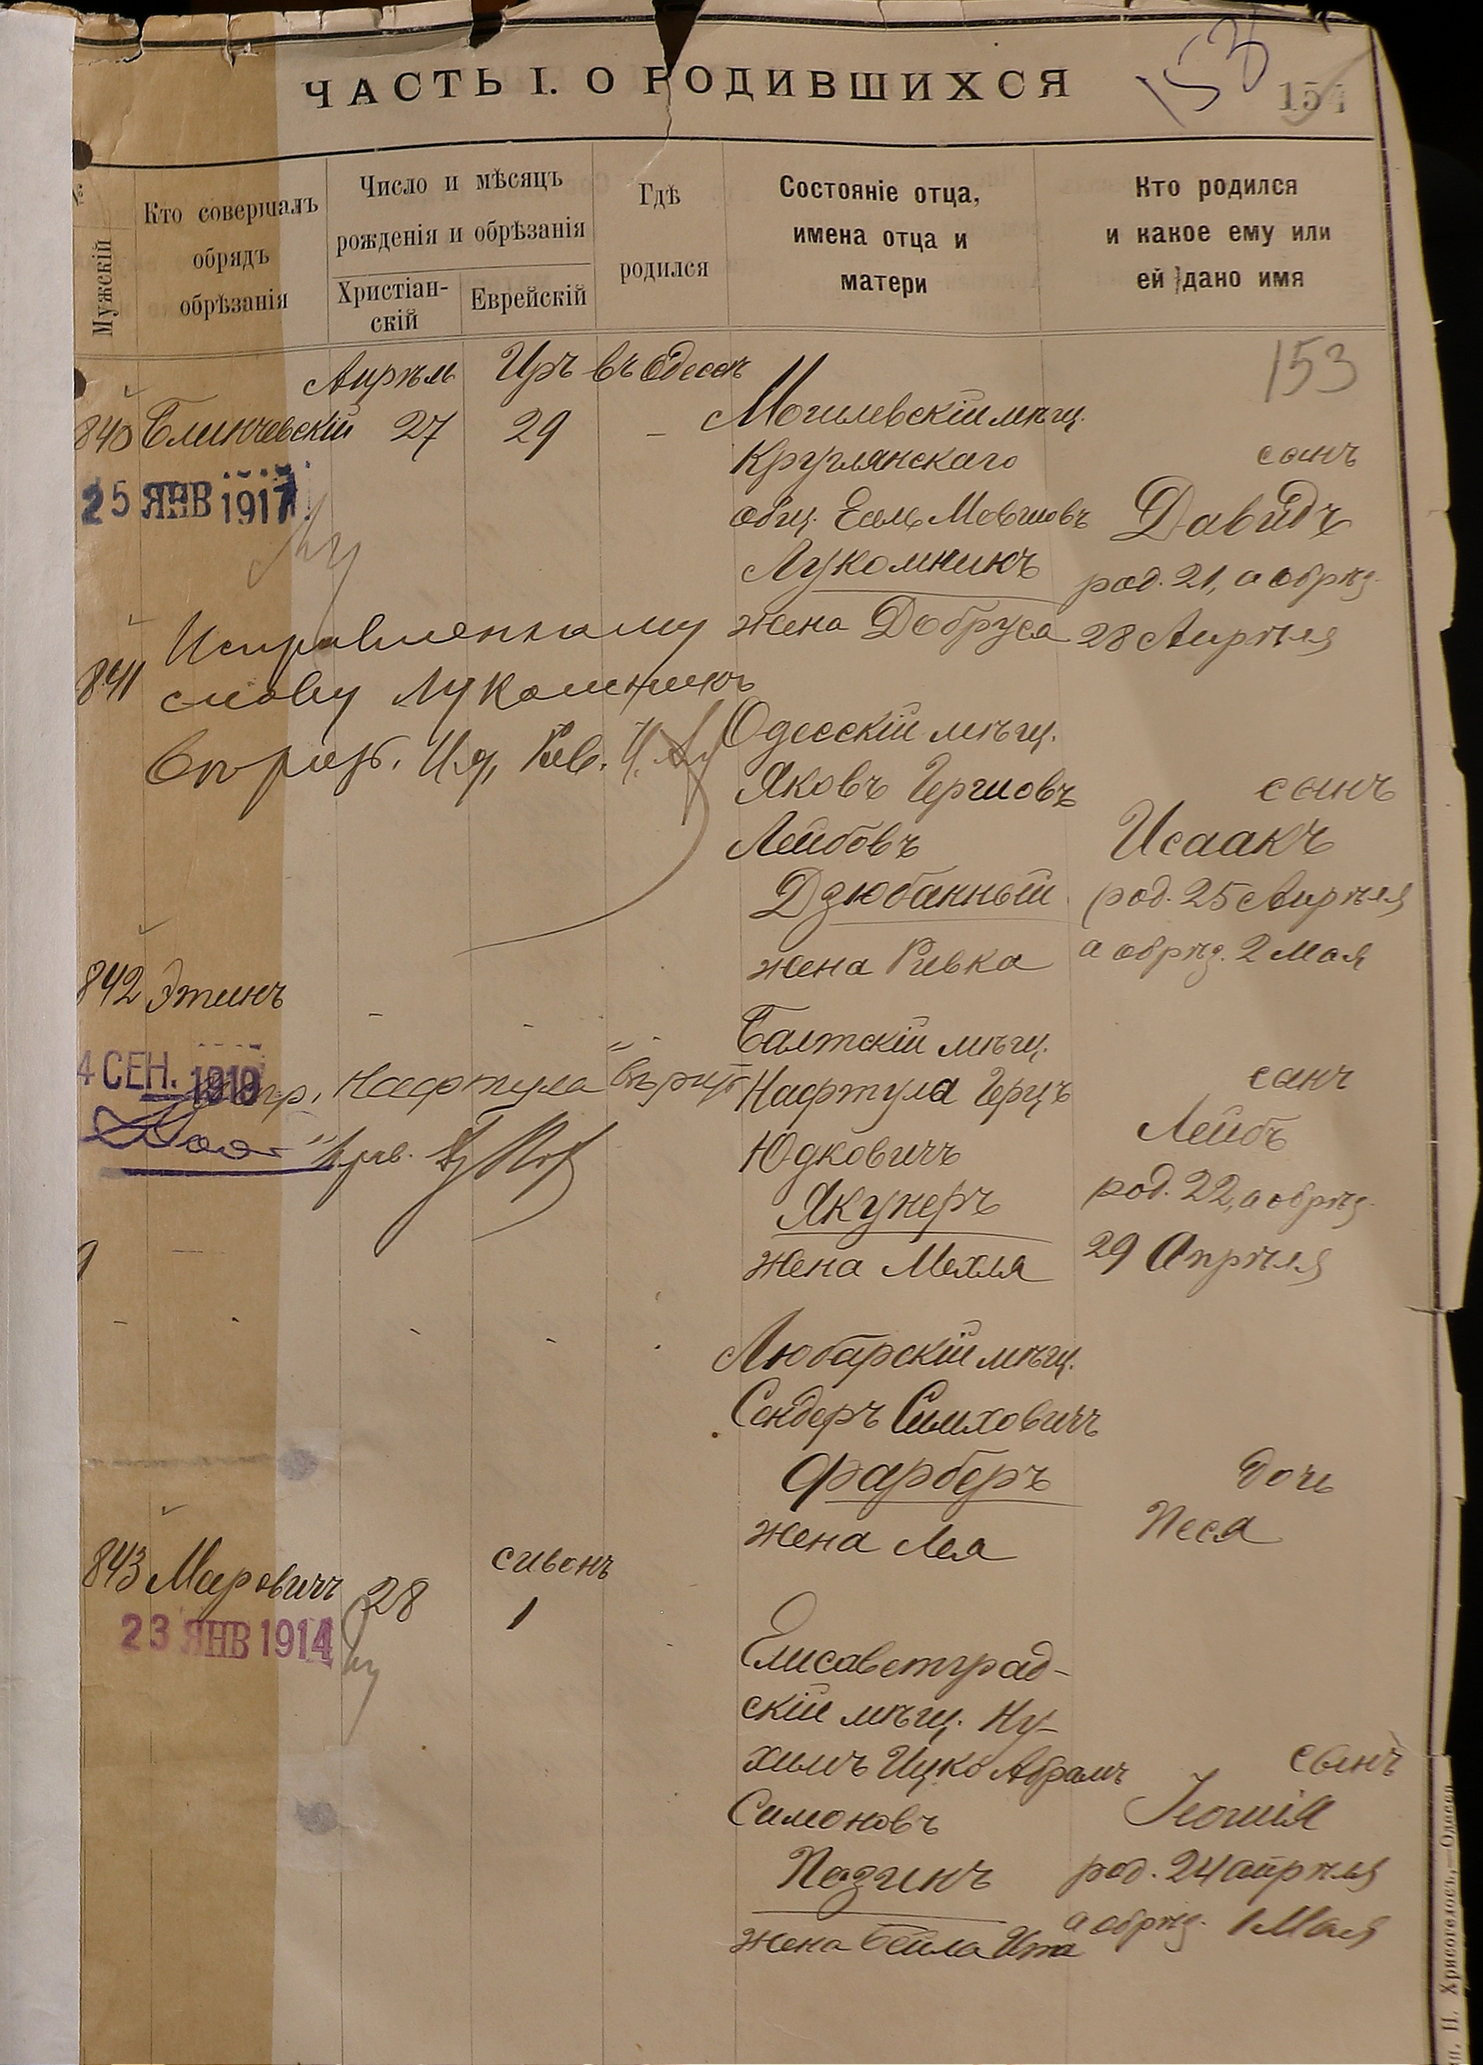 ЧАСТЬ I. О РОДИВШИХСЯ
153
154
№
Мужскій
Кто совершалъ
обрядъ
обрѣзанія
Число и мѣсяцъ
рожденія и обрѣзанія
Христіан-
скій
Еврейскій
Гдѣ
родился
Состояніе отца,
имена отца и
матери
Кто родился
и какое ему или
ей дано имя
153
Апрѣль Иръ въ Одессѣ
840 Блинчевскій 27 29 –
25 ЯНВ 1917
Могилевскій мѣщ.
Круглянскаго
общ. Есель Мовшовъ
Лукомникъ
жена Добруса
сынъ
Давидъ
род. 21, а обрѣз.
28 Апрѣля
841
Исправленному
слову Лукомникъ
вѣрить. И.д. Рав.
Одесскій мѣщ.
Яковъ Гершовъ
Лейбовъ
Дзюбанный
жена Ривка
сынъ
Исаакъ
род. 25 Апрѣля
а обрѣз. 2 Мая
842 Этинъ
4 СЕН. 1919
испр. "Нафтула" вѣрить
Балтскій мѣщ.
Нафтула Герцъ
Юдковичъ
Якунеръ
жена Махля
сынъ
Лейбъ
род. 22, а обрѣз.
29 Апрѣля
Любарскій мѣщ.
Сендеръ Симховичъ
Фарберъ
жена Лея
дочь
Песя
843 Марковичъ 28
сивонъ
1
23 ЯНВ 1914
Елисаветград-
скій мѣщ. Ну-
химъ Ицко Абрамъ
Симоновъ
Пазинъ
жена Бейла Ита
сынъ
Іошія
род. 24 апрѣля
а обрѣз. 1 Мая
П. Хрисогелосъ,—Одесса